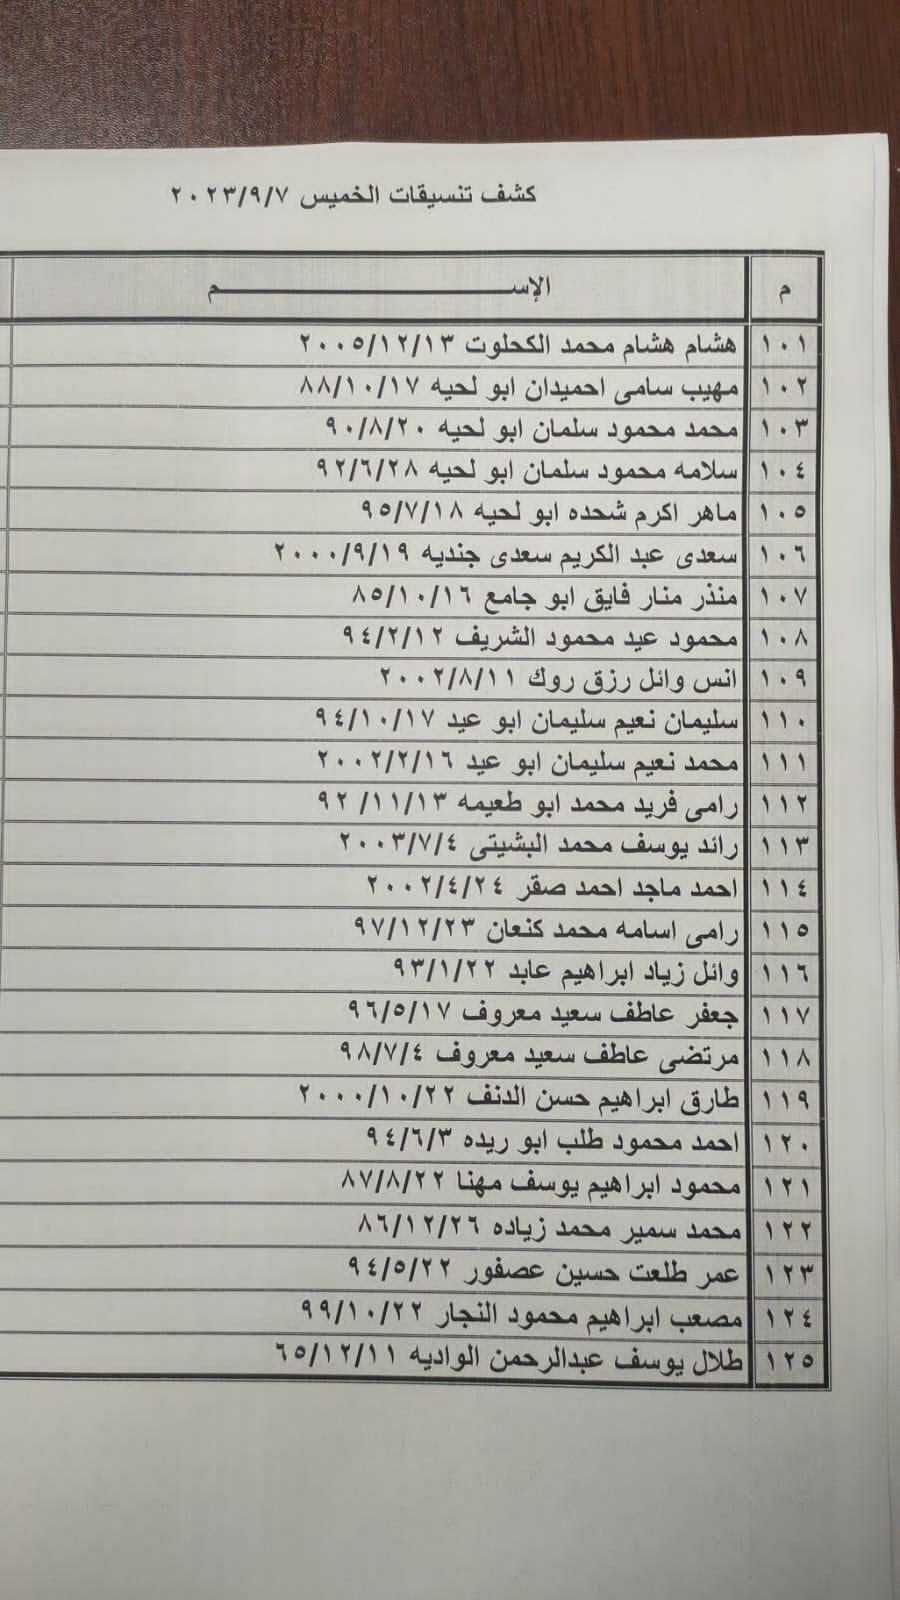 كشف تنسيقات الخميس ٢٠٢٣/٩/٧
م الإســـــــــــــــــــــــم
١٠١ هشام هشام محمد الكحلوت ٢٠٠٥/١٢/١٣
١٠٢ مهيب سامى احميدان ابو لحيه ٨٨/١٠/١٧
١٠٣ محمد محمود سلمان ابو لحيه ٩٠/٨/٢٠
١٠٤ سلامه محمود سلمان ابو لحيه ٩٢/٦/٢٨
١٠٥ ماهر اكرم شحده ابو لحيه ٩٥/٧/١٨
١٠٦ سعدى عبد الكريم سعدى جنديه ٢٠٠٠/٩/١٩
١٠٧ منذر منار فايق ابو جامع ٨٥/١٠/١٦
١٠٨ محمود عيد محمود الشريف ٩٤/٢/١٢
١٠٩ انس وائل رزق روك ٢٠٠٢/٨/١١
١١٠ سليمان نعيم سليمان ابو عيد ٩٤/١٠/١٧
١١١ محمد نعيم سليمان ابو عيد ٢٠٠٢/٢/١٦
١١٢ رامى فريد محمد ابو طعيمه ٩٢/١١/١٣
١١٣ رائد يوسف محمد البشيتى ٢٠٠٣/٧/٤
١١٤ احمد ماجد احمد صقر ٢٠٠٢/٤/٢٤
١١٥ رامى اسامه محمد كنعان ٩٧/١٢/٢٣
١١٦ وائل زياد ابراهيم عابد ٩٣/١/٢٢
١١٧ جعفر عاطف سعيد معروف ٩٦/٥/١٧
١١٨ مرتضى عاطف سعيد معروف ٩٨/٧/٤
١١٩ طارق ابراهيم حسن الدنف ٢٠٠٠/١٠/٢٢
١٢٠ احمد محمود طلب ابو ريده ٩٤/٦/٣
١٢١ محمود ابراهيم يوسف مهنا ٨٧/٨/٢٢
١٢٢ محمد سمير محمد زياده ٨٦/١٢/٢٦
١٢٣ عمر طلعت حسين عصفور ٩٤/٥/٢٢
١٢٤ مصعب ابراهيم محمود النجار ٩٩/١٠/٢٢
١٢٥ طلال يوسف عبدالرحمن الواديه ٦٥/١٢/١١